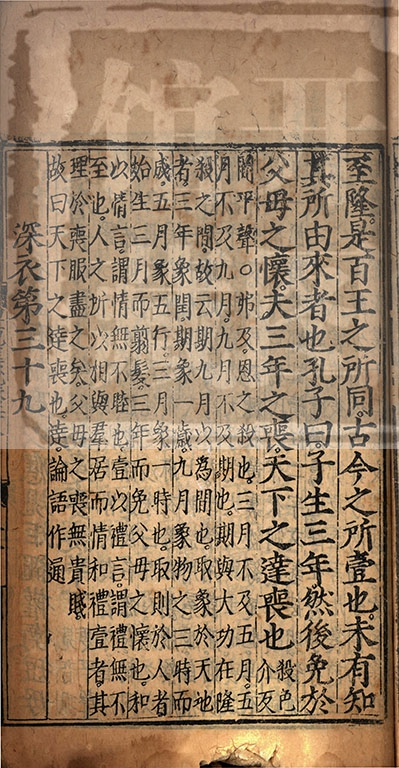 至隆。是百王之所同。古今之所壹也。未有知
其所由來者也孔子曰。子生三年然後免於
父母之懷。夫三年之喪。天下之達喪也
殺色
介反
間平聲○弗及。恩之殺也。三月不及五月。五
月不及九月。九月不及期也。期與大功在隆
殺之間。故云期九月以爲間也。取象於天地
者。三年象閏期象一歲。九月象物之三時而
成。五月象五行。三月象一時也。取則於人者
始生三月而翦髮。三年而免父母之懷也。和
以情言。謂情無不睦也。壹以禮言。謂禮無不
至也。人之所以相與羣居而情和禮壹者。其
理於喪服盡之矣。父母之喪無貴賤
故曰天下之達喪也。達。論語作通
深衣第三十九